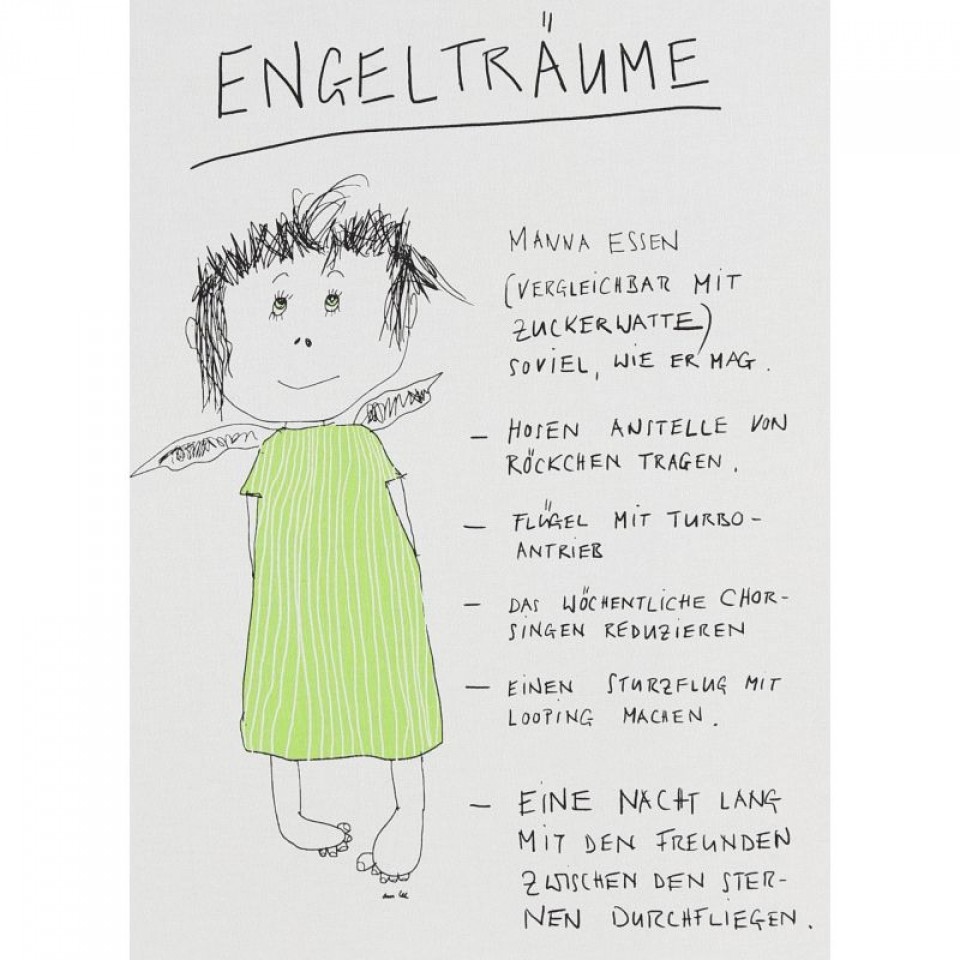 ENGELTRÄUME
MANNA ESSEN
(VERGLEICHBAR MIT
ZUCKERWATTE)
SOVIEL, WIE ER MAG.
– HOSEN ANSTELLE VON
RÖCKCHEN TRAGEN.
– FLÜGEL MIT TURBO-
ANTRIEB
– DAS WÖCHENTLICHE CHOR-
SINGEN REDUZIEREN
– EINEN STURZFLUG MIT
LOOPING MACHEN.
– EINE NACHT LANG
MIT DEN FREUNDEN
ZWISCHEN DEN STER-
NEN DURCHFLIEGEN.